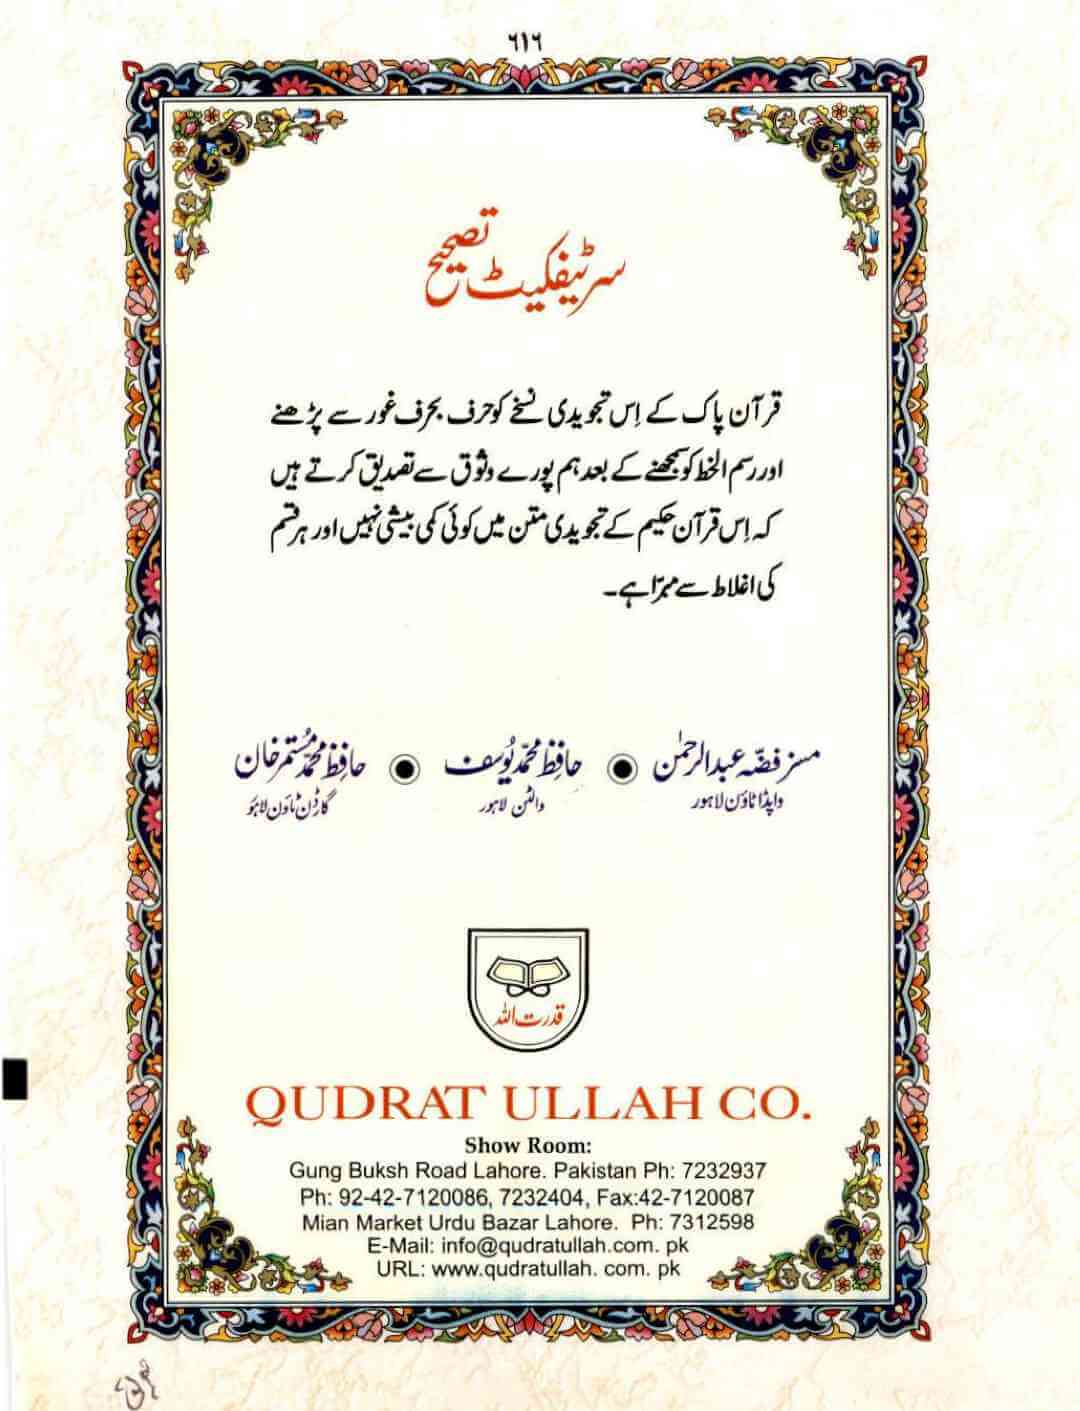 ٦١٦
سرٹیفکیٹ تصحیح
قرآن پاک کے اِس تجویدی نسخے کو حرف بحرف غور سے پڑھنے
اور رسم الخط کو سمجھنے کے بعد ہم پورے وثوق سے تصدیق کرتے ہیں
کہ اِس قرآن حکیم کے تجویدی متن میں کوئی کمی بیشی نہیں اور ہر قسم
کی اغلاط سے مبرّا ہے۔
مسز فضّہ عبدالرحمٰن ● حافظ محمّد یُوسف ● حافظ محمّد مُستمر خان
واپڈا ٹاؤن لاہور والٹن لاہور گارڈن ٹاؤن لاہور
قدرت اللہ
QUDRAT ULLAH CO.
Show Room:
Gung Buksh Road Lahore. Pakistan Ph: 7232937
Ph: 92-42-7120086, 7232404, Fax:42-7120087
Mian Market Urdu Bazar Lahore. Ph: 7312598
E-Mail: info@qudratullah.com. pk
URL: www.qudratullah. com. pk